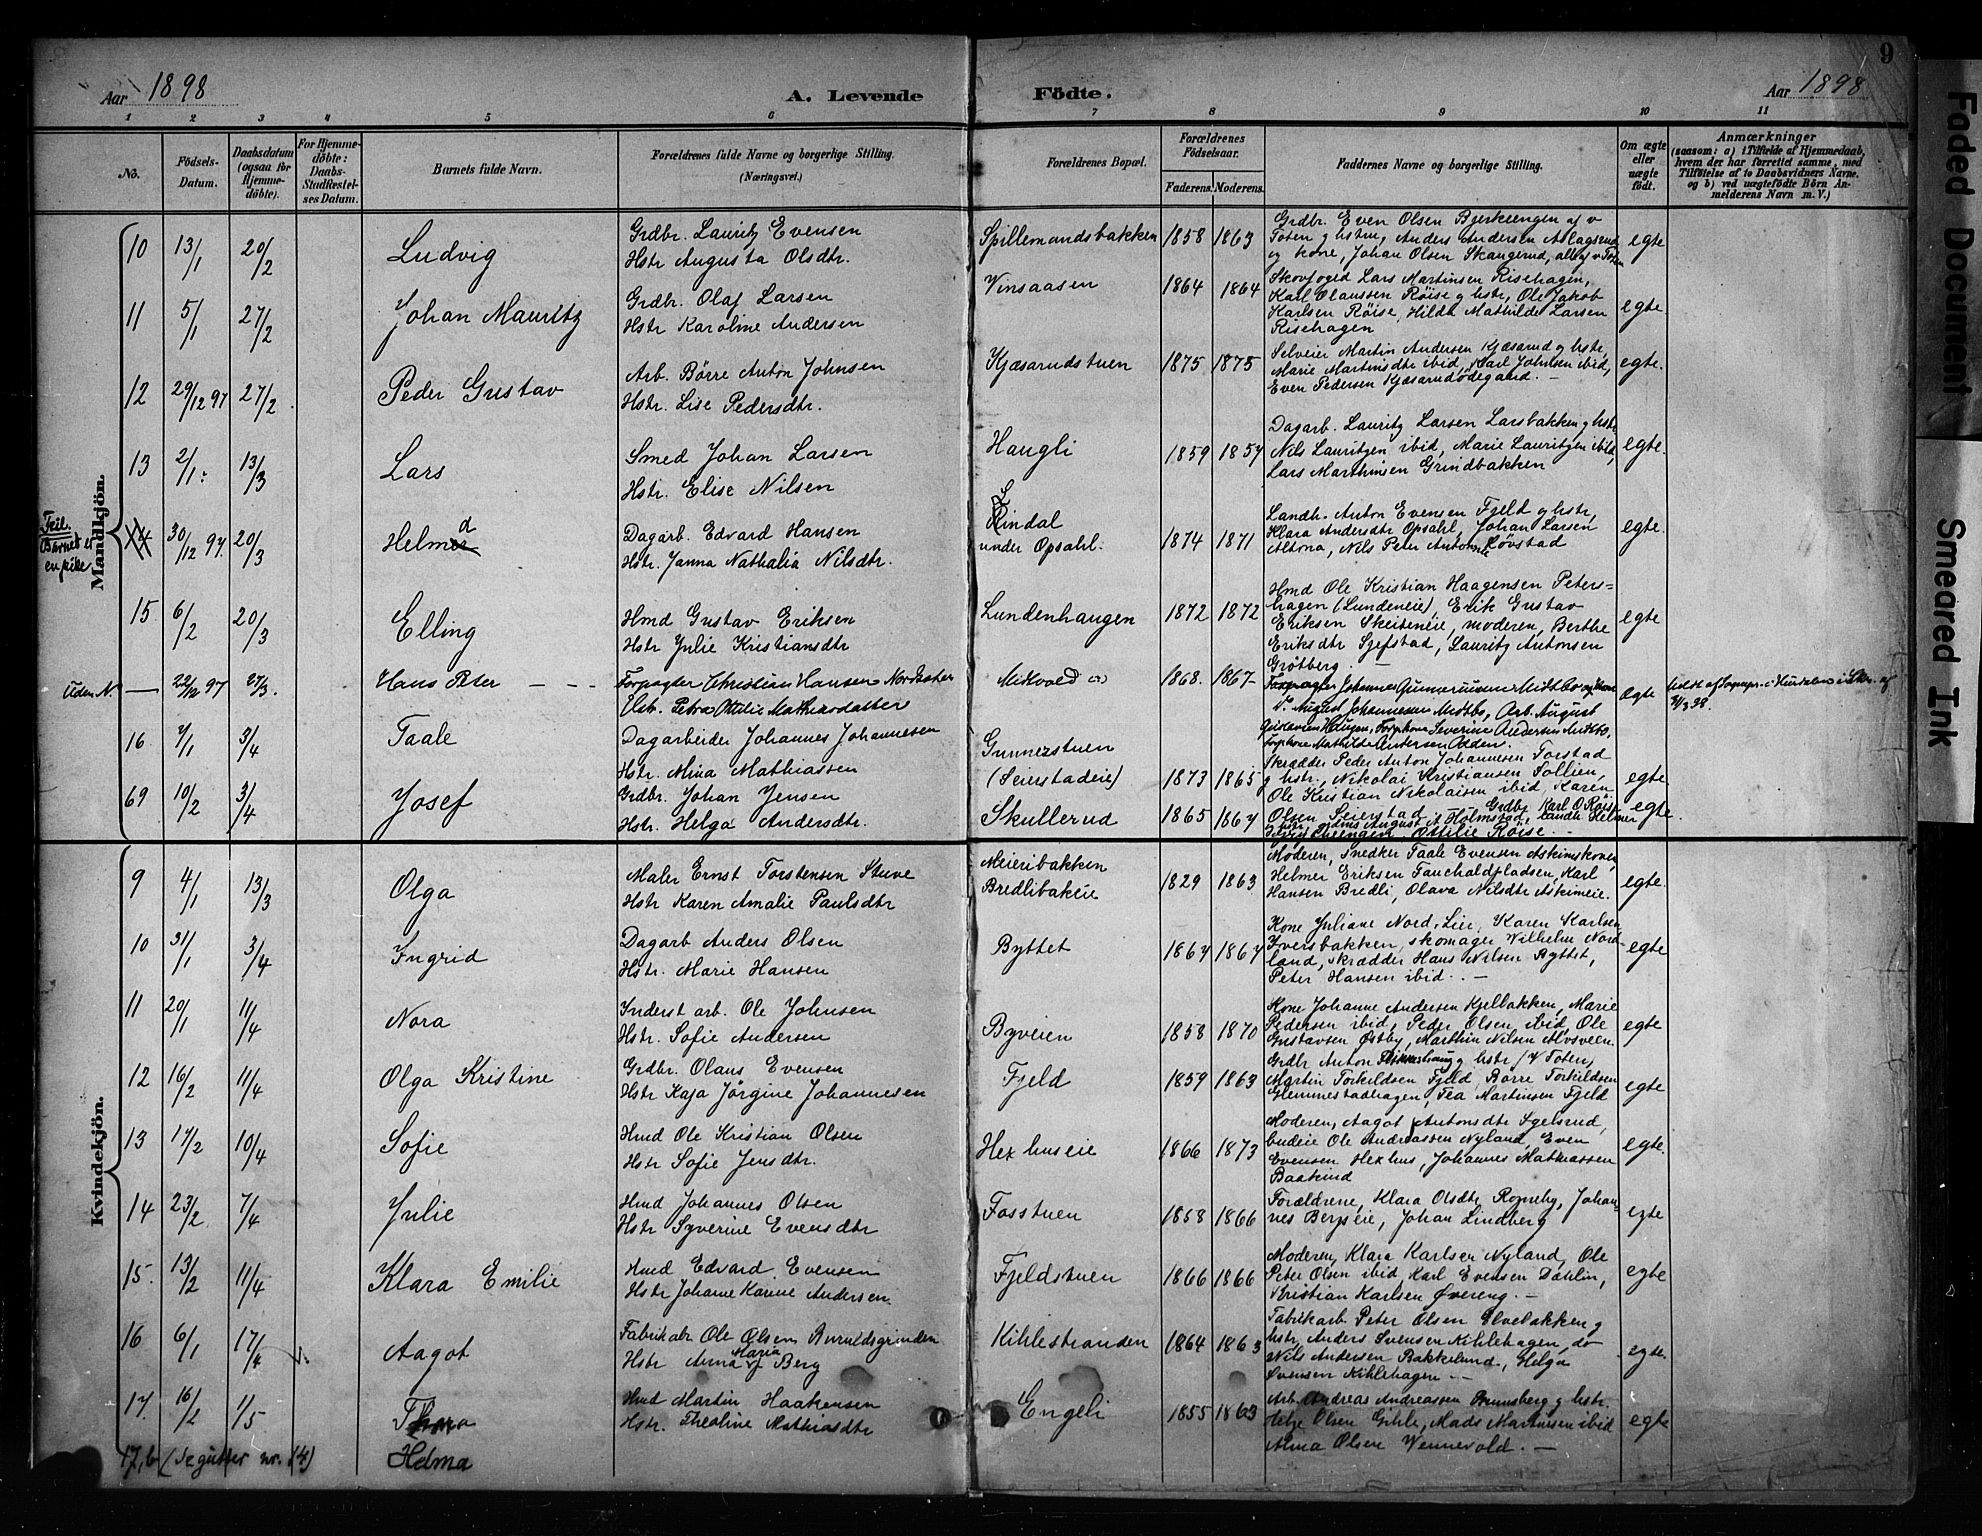 9
Aar 1898
A. Levende
Födte.
Aar 1898
1 2 3 4 5 6 7 8 9 10 11
No.
Födsels-Datum.
Daabsdatum (ogsaa for Hjemmedöbte).
For Hjemmedöbte: Daabs-Stadfæstelses Datum.
Barnets fulde Navn.
Forældrenes fulde Navne og borgerlige Stilling. (Næringsvei.)
Forældrenes Bopæl.
Forældrenes Födselsaar.
Faderens. Moderens.
Faddernes Navne og borgerlige Stilling.
Om ægte eller uægte födt.
Anmærkninger
(saasom: a) i Tilfælde af Hjemmedaab, hvem der har forrettet samme, med Tilföielse af to Daabsvidners Navne. og b) ved uægtefödte Börn Anmelderens Navn m. V.)
Mandkjön.
10 13/1 20/2 Ludvig
Grdbr. Lauritz Evensen
Hstr Augusta Olsdtr.
Spillemandsbakken 1858 1863
Grdbr. Even Olsen Bjerkeengen af v
Toten g hstru, Anders Andersen Aslagsrud
og kone, Johan Olsen Skangerud, alle af v Toten
egte
11 5/1 27/2 Johan Mauritz
Grdbr. Olaf Larsen
Hstr Karoline Andersen
Vinsaasen 1864 1864
Skovfoged Lars Martinsen Risehagen,
Karl Olaussen Röise g hstr, Ole Jakob
Karlsen Röise, Hilda Mathilde Larsen
Risehagen
egte
12 29/12 97 27/2 Peder Gustav
Arb. Børre Anton Johnsen
Hstr. Lise Pedersdtr.
Kjæsarudstuen 1875 1875
Selveier Martin Andersen Kjæsarud g hstr,
Marie Martinsdtr ibid, Karl Johnsen ibid,
Even Pedersen Kjæsarudødegaard. —
egte.
13 2/1. 13/3 Lars
Smed Johan Larsen
Hstr. Elise Nilsen
Haugli 1859 1857
Dagarb. Lauritz Larsen Larsbakken g hstr
Nils Lauritzen ibid, Marie Lauritzen ibid,
Lars Marthinsen Grindbakken
egte.
Feil.
Barnet er
en pike
14 30/12 97. 20/3 Helmer d
Dagarb. Edvard Hansen
Hstr. Janna Nathalia Nilsdtr.
Lindal
under Opsahl. 1874 1871
Landh. Anton Evensen Fjeld g hstr,
Klara Andersdtr Opsahl, Johan Larsen
Altona, Nils Peter Antonsen Røvstad
egte
15. 6/2 20/3 Elling
Hmd Gustav Eriksen
Hstr Julie Kristiansdtr
Lundenhaugen 1872 1872
Hmd Ole Kristian Haagensen Peters=
hagen (Lundeneie), Erik Gustav
Eriksen Skeiteneie, moderen, Berthe
Eriksdtr Sæfstad, Lauritz Antonsen
Grötberg. —
egte
Uden No — 22/12 97 27/3. Hans Peter — - -
Forpagter Christian Hansen
Hstr. Petra Ottilie Mathiasdatter
1868. 1867
August Johannesen Midtbö, Arb. August
Gustavsen Haugen,
Ægte
16 7/1 3/4 Taale
Dagarbeider Johannes Johannesen
Hstr. Mina Mathiassen
Gunnerstuen
(Seierstadeie) 1873 1865
Skrædder Peder Anton Johannesen Forstad
g hstr, Nikolai Kristiansen Follien,
Ole Kristian Nikolaisen ibid, Karen
Olsen Seierstad
egte
69 10/2 3/4 Josef
Grdbr. Johan Jensen
Hstr. Helga Andersdtr.
Skullerud 1865 1867
Grdbr Karl O Röise
Ottilie Röise. —
egte.
Kvindekjön.
9 4/1 13/3 Olga
Maler Ernst Torstensen Stuve
Hstr Karen Amalie Paulsdtr
Meieribakken
Bredlibakeie 1829 1863
Moderen, snedker Taale Evensen Askimskonen
Helmer Eriksen Fauchaldpladsen, Karl
Hansen Bredli, Olava Nilsdtr Askimeie.
egte.
10 31/1 3/4 Ingrid
Dagarb Anders Olsen
Hstr. Marie Hansen
Byttet 1867 1867
Kone Juliane Nord. Lier, Karen Karlsen
Iversbakken, skomager Vilhelm Nord-
land, skrædder Hans Nilsen Byttet,
Peter Hansen ibid. —
egte
11 20/1 11/4 Nora
Inderst arb. Ole Johnsen
Hstr. Sofie Andersen
Byveien 1858 1870
Kone Johanne Andersen Kjelbakken, Marie
Pedersen ibid, Peder Olsen ibid, Ole
Gustavsen Østby, Marthin Nilsen Alvsveen.
egte
12 16/2 11/4 Olga Kristine
Grdbr. Olaus Evensen
Hstr Kaja Jörgine Johannesen
Fjeld 1859 1863
Grdbr Anton g hstr (V Toten),
Martin Torkildsen Fjeld, Børre Torkildsen
Glemmestadhagen, Tea Martinsen Fjeld
egte
13 17/2 10/4 Sofie
Hmd Ole Kristian Olsen
Hstr Sofie Jensdtr.
Hexhuseie 1866 1873
Moderen, Aagot Antonsdtr Sgelsrud,
budeie Ole Andreassen Nyland, Even
Evensen Hexhus, Johannes Mathiassen
Baakind
egte.
14 23/2 7/4 Julie
Hmd Johannes Olsen
Hstr Syverine Evensdtr
Fosstuen 1858 1866
Forældrene, Klara Olsdtr Rogneby, Johan-
nes Bergseie, Johan Lindberg
egte
15. 13/2 11/4 Klara Emilie
Hmd Edvard Evensen
Hstr Johanne Karine Andersen
Fjeldstuen 1866 1866
Moderen, Klara Karlsen Nyland, Ole
Peter Olsen ibid, Karl Evensen Dahlin,
Kristian Karlsen Övereng. —
egte
16 6/1 17/4 Aagot
Fabrikab Ole Olsen Buruldsgrinden
Hstr Anna Maria Berg
Kihlestranden 1864 1863
Fabrikarb Peter Olsen Elvebakken g
hstr, Anders Svensen Kihlehagen, do
Nils Andersen Bakkelund, Helga
Svensen Kihlehagen —
egte
17. 16/2 1/5 Thora
Hmd Martin Haakensen
Hstr. Theoline Mathiasdtr
Engeli 1855 1863
Arb. Andreas Andreassen Brunsberg g hstr.
Helje Olsen Gihle, Mads Martinsen ibid
Alma Olsen Wennevold. —
egte
17,b (se gutter nr. 14) Helma
Faded Document
Smeared Ink